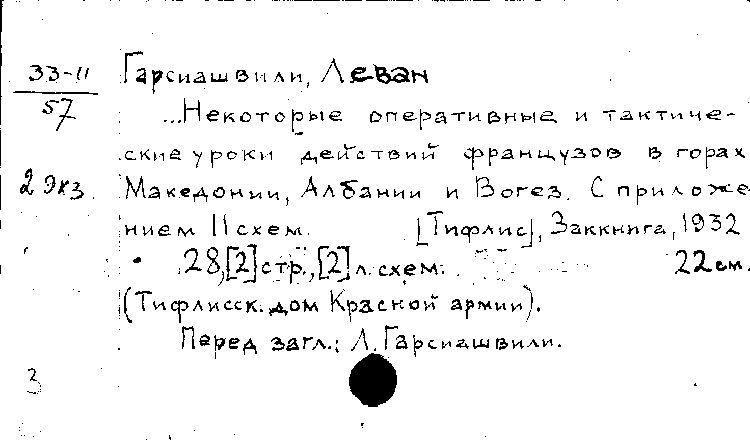 33-11 Гарсиашвили, Леван
57
...Некоторые оперативные и тактиче-
ские уроки действий французов в горах
2 экз. Македонии, Албании и Вогез. С приложе
нием 11 схем. [Тифлис], Заккнига, 1932
28, [2] стр., [2] л. схем. 22 см.
(Тифлисск. дом Красной армии).
Перед загл.: Л. Гарсиашвили.
3